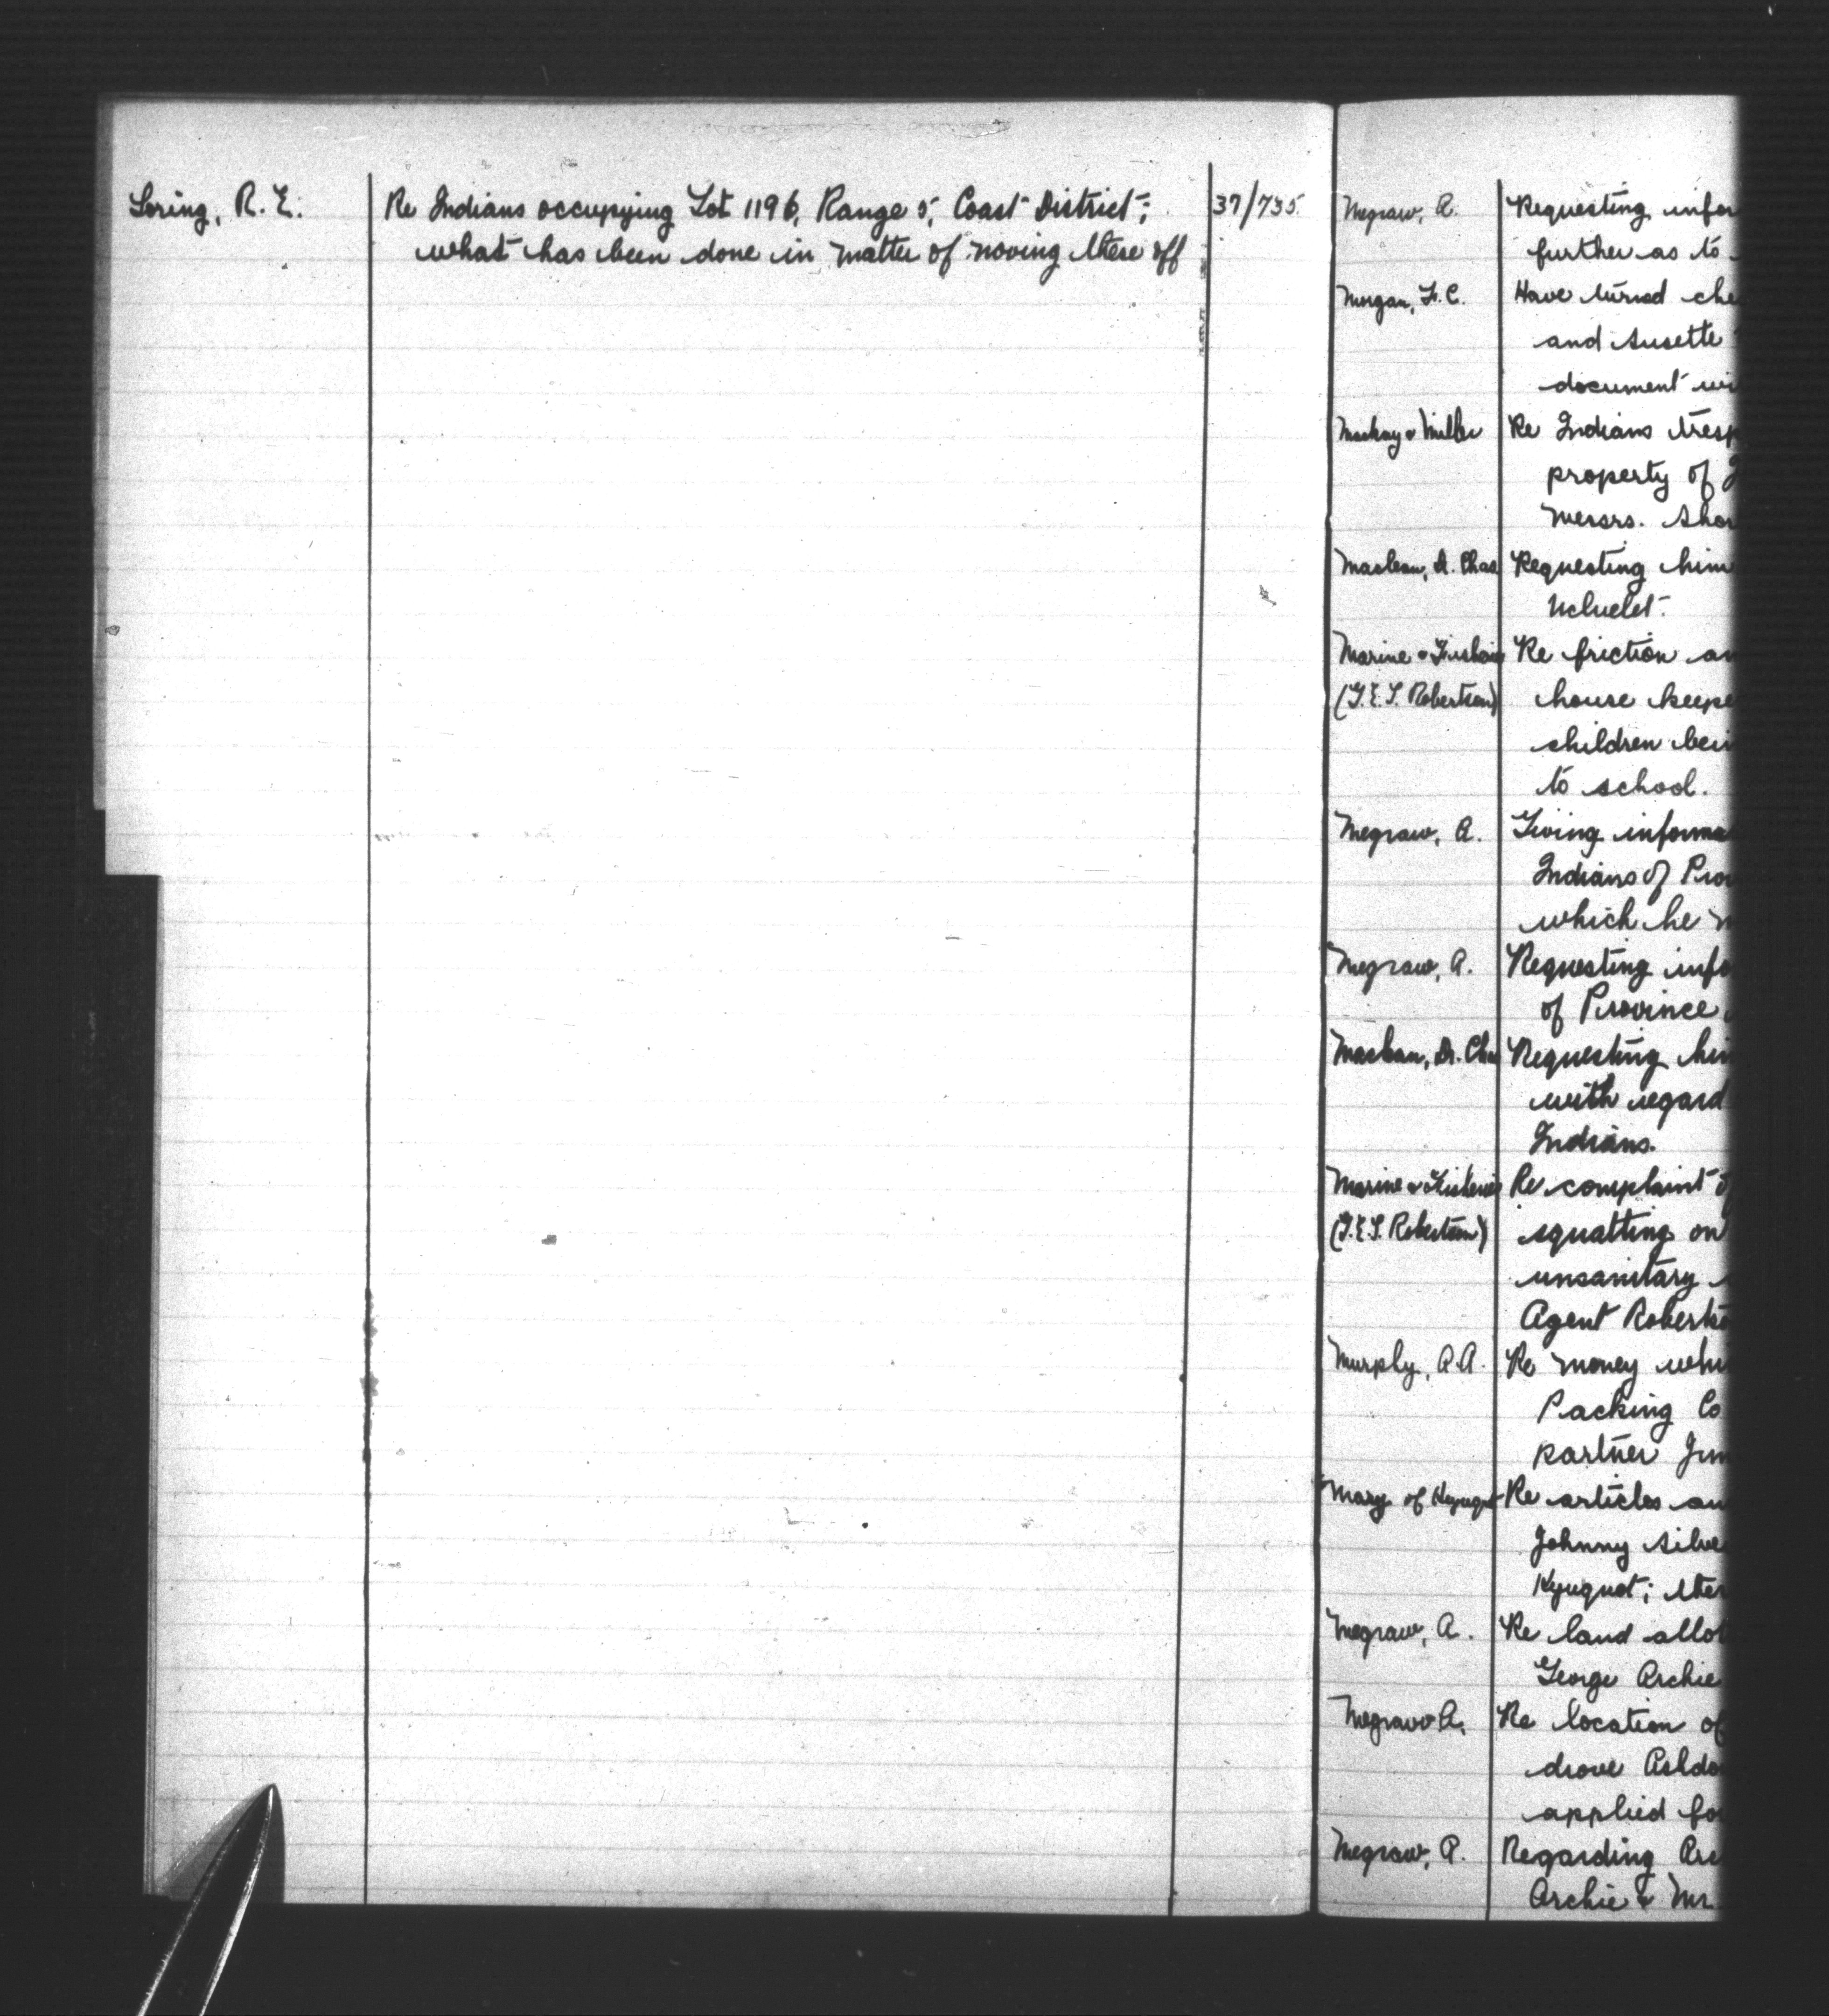 Loring, R. E. Re Indians occupying Lot 1196, Range 5, Coast District; 37/735
what has been done in matter of moving these off
Megraw, A. Requesting infor
further as to
Morgan, F. C. Have turned che
and Susette
document wi
Mackay & Miller Re Indians tresp
property of
Messrs. Shor
Maclean, Dr. Chas Requesting him
Ucluelet.
Marine & Fisheries Re friction an
(G.E.L. Robertson) house keepe
children bein
to school.
Megraw, A. Giving informa
Indians of Prov
which he
Megraw, A. Requesting info
of Province
Maclean, Dr. Chas Requesting him
with regard
Indians.
Marine & Fisheries Re complaint
(G.E.L. Robertson) squatting on
unsanitary
Agent Robertso
Murphy, A.A. Re money whi
Packing Co
partner Jim
Mary of Kyuquot Re articles an
Johnny Silve
Kyuquot; ther
Megraw, A. Re land allot
George Archie
Megraw A. Re location of
drove Ashdo
applied for
Megraw, A. Regarding Arc
Archie & Mr.